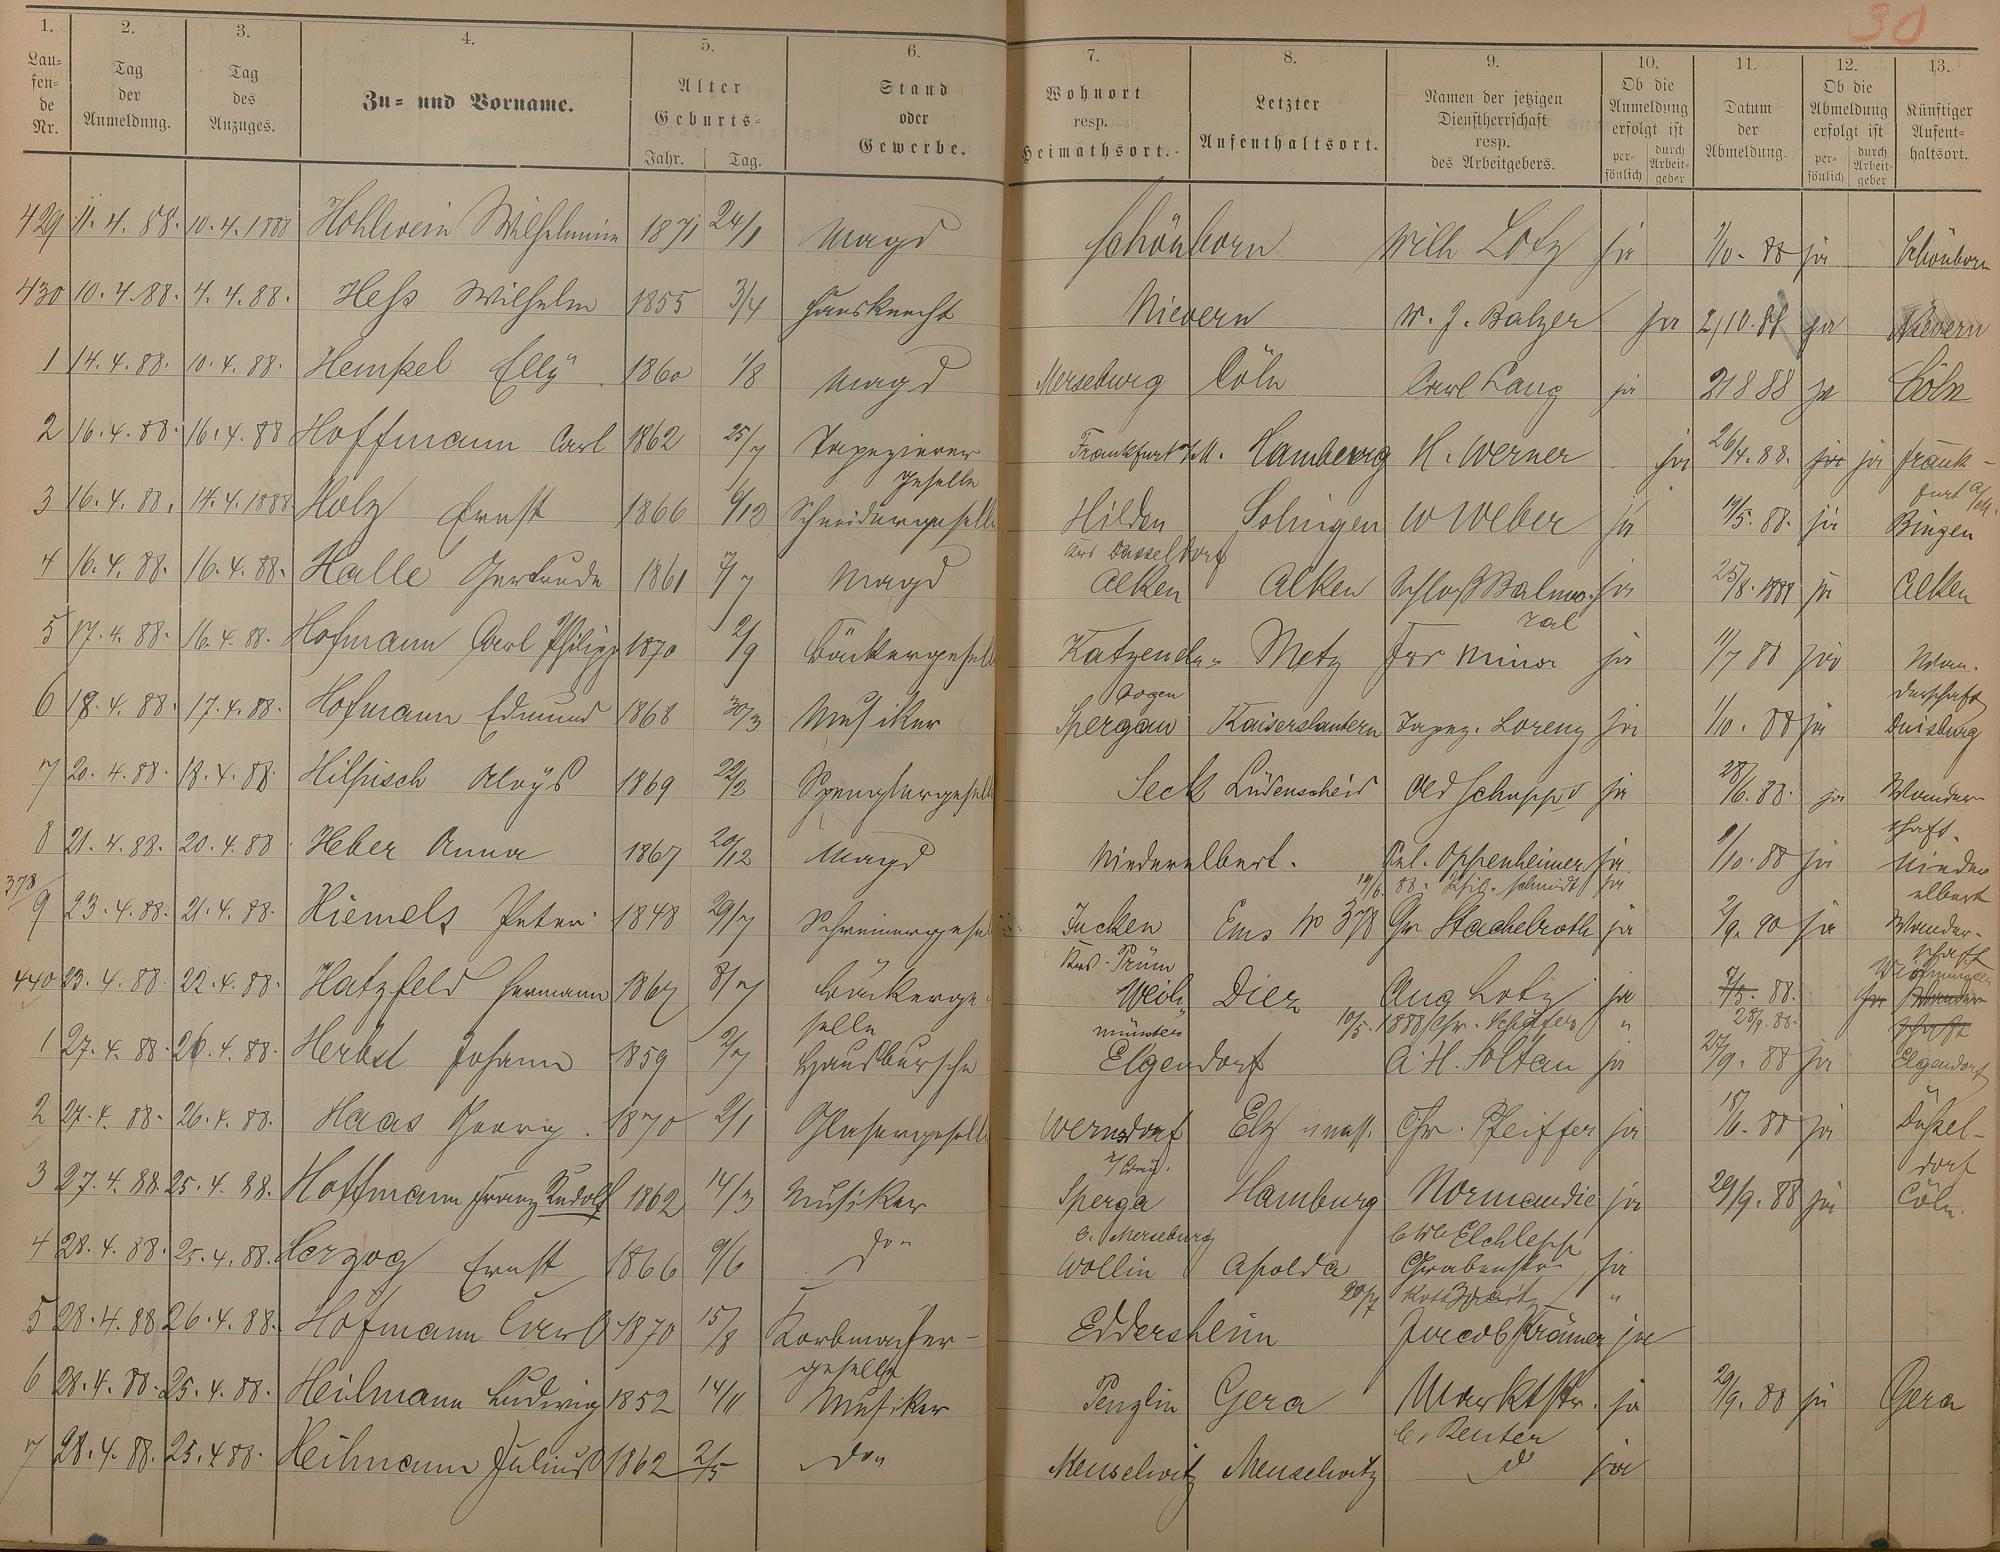 30
1. 2. 3. 4. 5. 6. 7. 8. 9. 10. 11. 12. 13.
Lau=fen=de Nr. Tag der Anmeldung. Tag des Anzuges. Zu= und Vorname. Alter Geburts= Jahr. Tag. Stand oder Gewerbe. Wohnort resp. Heimathsort. Letzter Aufenthaltsort. Namen der jetzigen Dienstherrschaft resp. des Arbeitgebers. Ob die Anmeldung erfolgt ist per=sönlich durch Arbeit=geber Datum der Abmeldung. Ob die Abmeldung erfolgt ist per=sönlich durch Arbeit=geber Künftiger Aufent=haltsort.
429 11. 4. 88. 10. 4. 1888 Hohlwein Wilhelmine 1871 24/1 Magd Schönborn Wilh Lotz ja 1/10. 88 ja Schönborn
430 10. 4. 88. 4. 4. 88. Heß Wilhelm 1855 3/4 Hausknecht Nievern W. J. Balzer ja 2/10. 88 ja Nievern
1 14. 4. 88. 10. 4. 88. Hempel Elly 1860 1/8 Magd Merseburg Cöln Carl Lang ja 21 8 88 ja Cöln
2 16. 4. 88. 16. 4. 88 Hoffmann Carl 1862 25/7 Tapezierer Frankfurt a/M. Hamburg H. Werner ja 26/4. 88. ja ja Frank-
Geselle furt a/M.
3 16. 4. 88. 14. 4. 1888 Holz Ernst 1866 6/12 Schneidergeselle Hilden Solingen W Weber ja 19/5. 88. ja Bingen
Krs Düsseldorf
4 16. 4. 88. 16. 4. 88. Halle Gertrude 1861 7/7 Magd Alken Alken Schloß Balmo- ja 25/8. 1888 ja Alken
ral
5 17. 4. 88. 16. 4. 88. Hofmann Carl Philipp 1870 2/9 Bäckergeselle Katzeneln- Metz Frz Minor ja 11/7 88 ja Wan-
bogen derschaft
6 18. 4. 88. 17. 4. 88. Hofmann Edmund 1868 30/3 Musiker Spergau Kaiserslautern Tapez. Lorenz ja 1/10. 88 ja Duisburg
7 20. 4. 88. 18. 4. 88. Hilpisch Aloÿs 1869 22/2 Spenglergeselle Seck Lüdenscheid Ad Schupp ja 28/6. 88. ja Wander-
schaft.
8 21. 4. 88. 20. 4. 88 Heber Anna 1867 20/12 Magd Niederelbert. Oppenheimer ja 9/10. 88 ja Nieder
88. Phil. Schmidt ja elbert
378/9 23. 4. 88. 21. 4. 88. Hiemels Peter 1848 29/7 Schreinergesel Jucken Ems No 378 Gg Stachelroth ja 2/9. 90 ja Wander-
Krs. Prüm schaft
440 23. 4. 88. 22. 4. 88. Hatzfeld Hermann 1867 8/7 Bäckerge- Weil- Diez Aug Lotz ja 7/5. 88. ja
selle münster 10/5. 1888 Chr. Schäfer " 28/9. 88.
1 27. 4. 88 26. 4. 88. Herbst Johann 1859 2/7 Hausbursche Elgendorf A. H. Soltau ja 25/9. 88 ja Elgendorf
2 27. 4. 88. 26. 4. 88. Haas Georg 1870 2/1 Glasergeselle Wernsdorf Elz Chr. Pfeiffer ja 18/6. 88 ja Düssel-
dorf
3 27. 4. 88. 25. 4. 88. Hoffmann Franz Rudolf 1862 14/3 Musiker Sperga Hamburg Normandie ja 29/9. 88 ja Cöln.
b. Merseburg b. We Elchlepp
4 28. 4. 88. 25. 4. 88. Herzog Ernst 1866 9/6 do" Wollin Apolda Grabenstr. ja
20/7 "
5 28. 4. 88 26. 4. 88. Hofmann Carl 1870 15/8 Korbmacher- Eddersheim Jacob Krämer ja
geselle
6 28. 4. 88. 25. 4. 88. Heilmann Ludwig 1852 14/11 Musiker Penzlin Gera Marktstr. ja 29/9. 88 ja Gera
b. Reuter
7 28. 4. 88. 25. 4 88. Heilmann Julius 1862 2/5 do" Meuselwitz Meuselwitz do ja